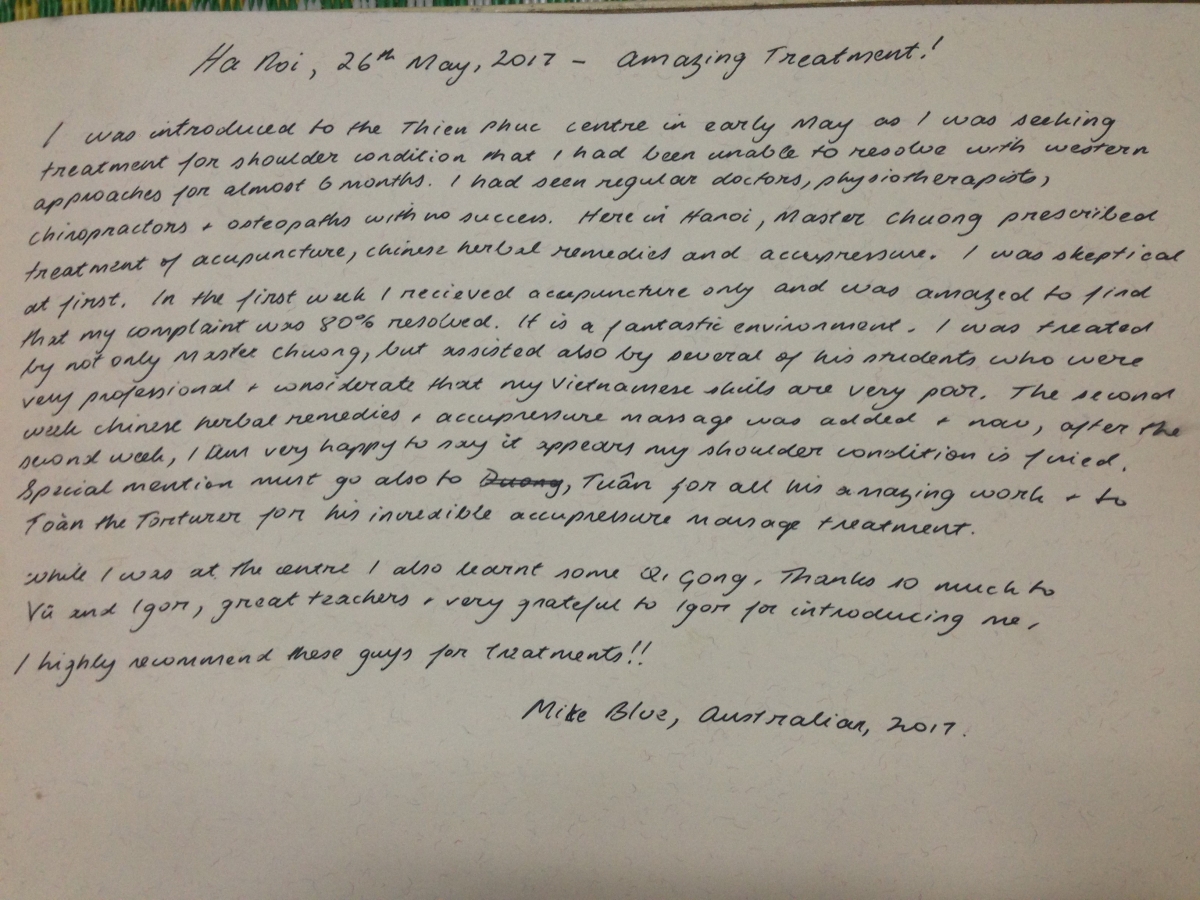 Ha Noi, 26th May, 2017 - Amazing Treatment!
I was introduced to the Thien Phuc centre in early May as I was seeking
treatment for shoulder condition that I had been unable to resolve with western
approaches for almost 6 months. I had seen regular doctors, physiotherapists,
chiropractors + osteopaths with no success. Here in Hanoi, Master Chuong prescribed
treatment of acupuncture, chinese herbal remedies and accupressure. I was skeptical
at first. In the first week I recieved accupuncture only and was amazed to find
that my complaint was 80% resolved. It is a fantastic environment. I was treated
by not only Master Chuong, but assisted also by several of his students who were
very professional + considerate that my Vietnamese skills are very poor. The second
week chinese herbal remedies + accupressure massage was added + now, after the
second week, I am very happy to say it appears my shoulder condition is fixed.
Special mention must go also to Duong, Tuân for all his amazing work + to
Toàn the Torturer for his incredible accupressure massage treatment.
While I was at the centre I also learnt some Qi Gong. Thanks so much to
Vũ and Igor, great teachers + very grateful to Igor for introducing me.
I highly recommend these guys for treatments!!
Mike Blue, Australian, 2017.